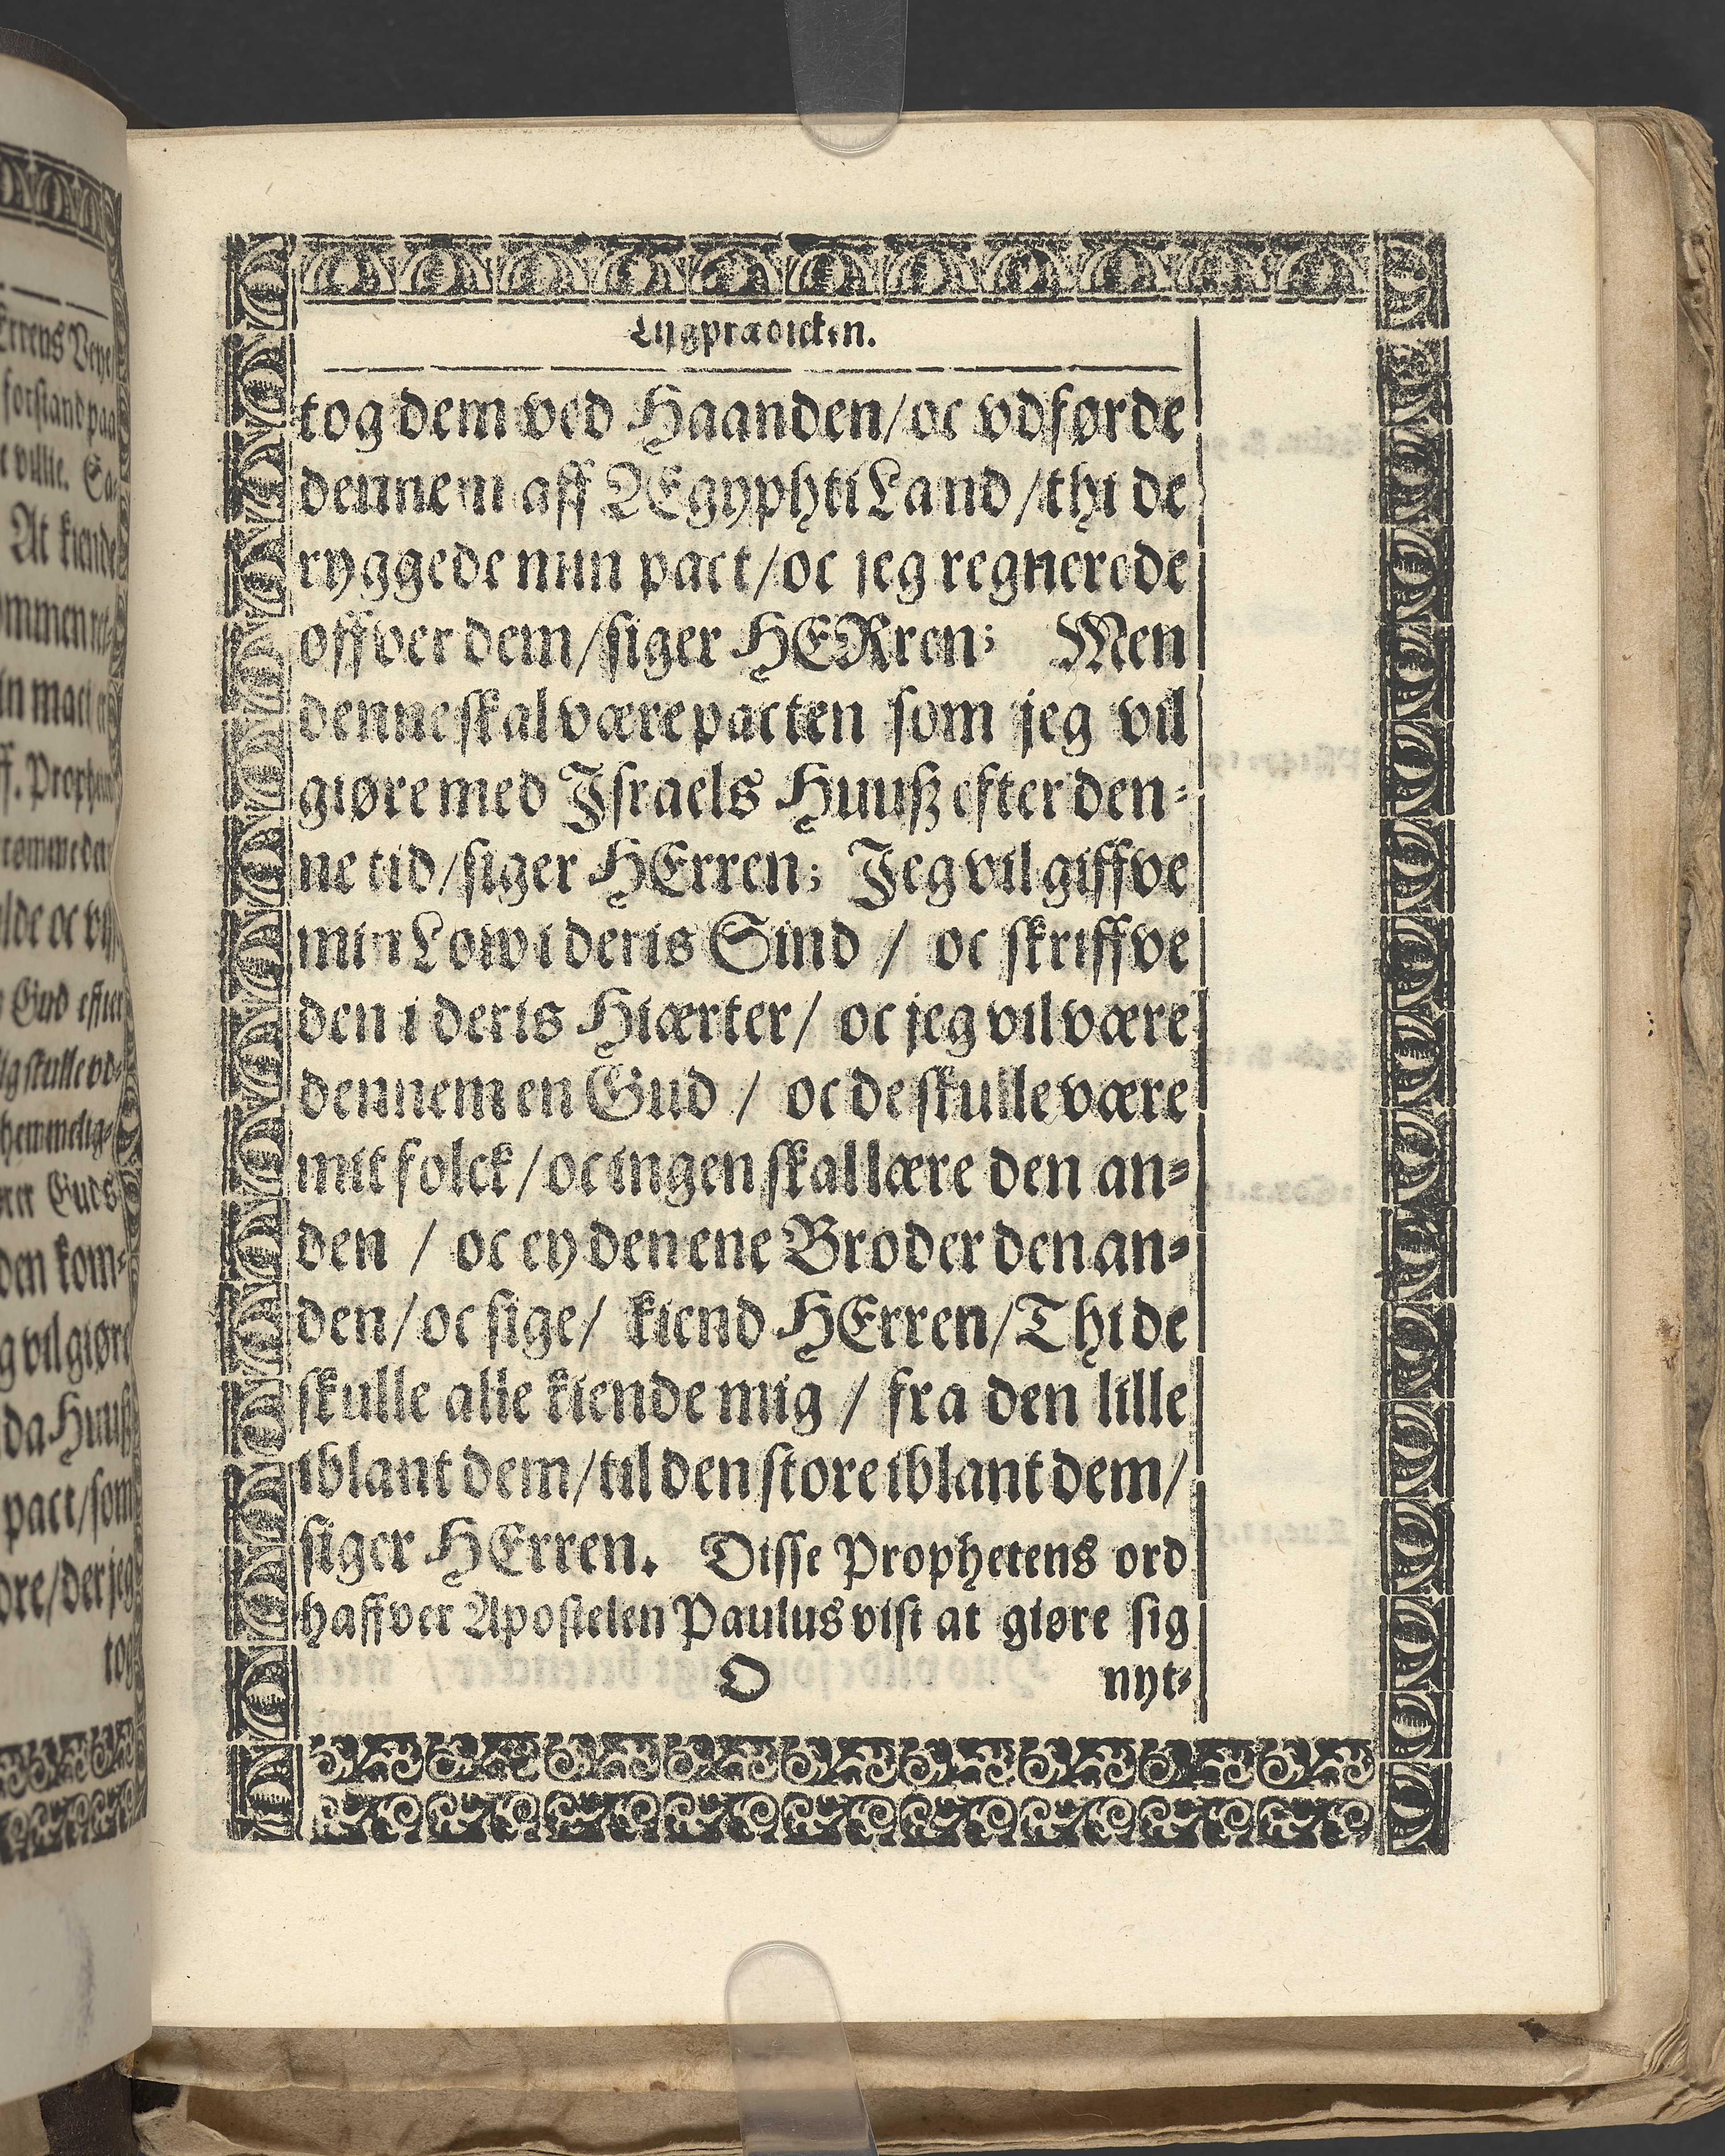 Lijgprædicken.
tog dem ved Haanden/oc vdførde
dennem aff ÆgyphtiLand/thi de
ryggede min pact/oc jeg regnerede
offver dem/siger HERren; Men
denne skal være pacten som jeg vil
giøre med Israels Huuß efter den-
ne tid/siger HErren; Jeg vil giffve
min Low i deris Sind / oc skriffve
den i deris Hiærter/ oc jeg vil være
dennem en Gud / oc de skulle være
mit folck/oc ingen skal lære den an-
den / oc ey den ene Broder den an-
den/oc sige/ kiend HErren/Thi de
skulle alle kiende mig / fra den lille
iblant dem/til den store iblant dem/
siger HErren. Disse Prophetens ord
haffver Apostelen Paulus vist at giøre sig
O nyt-